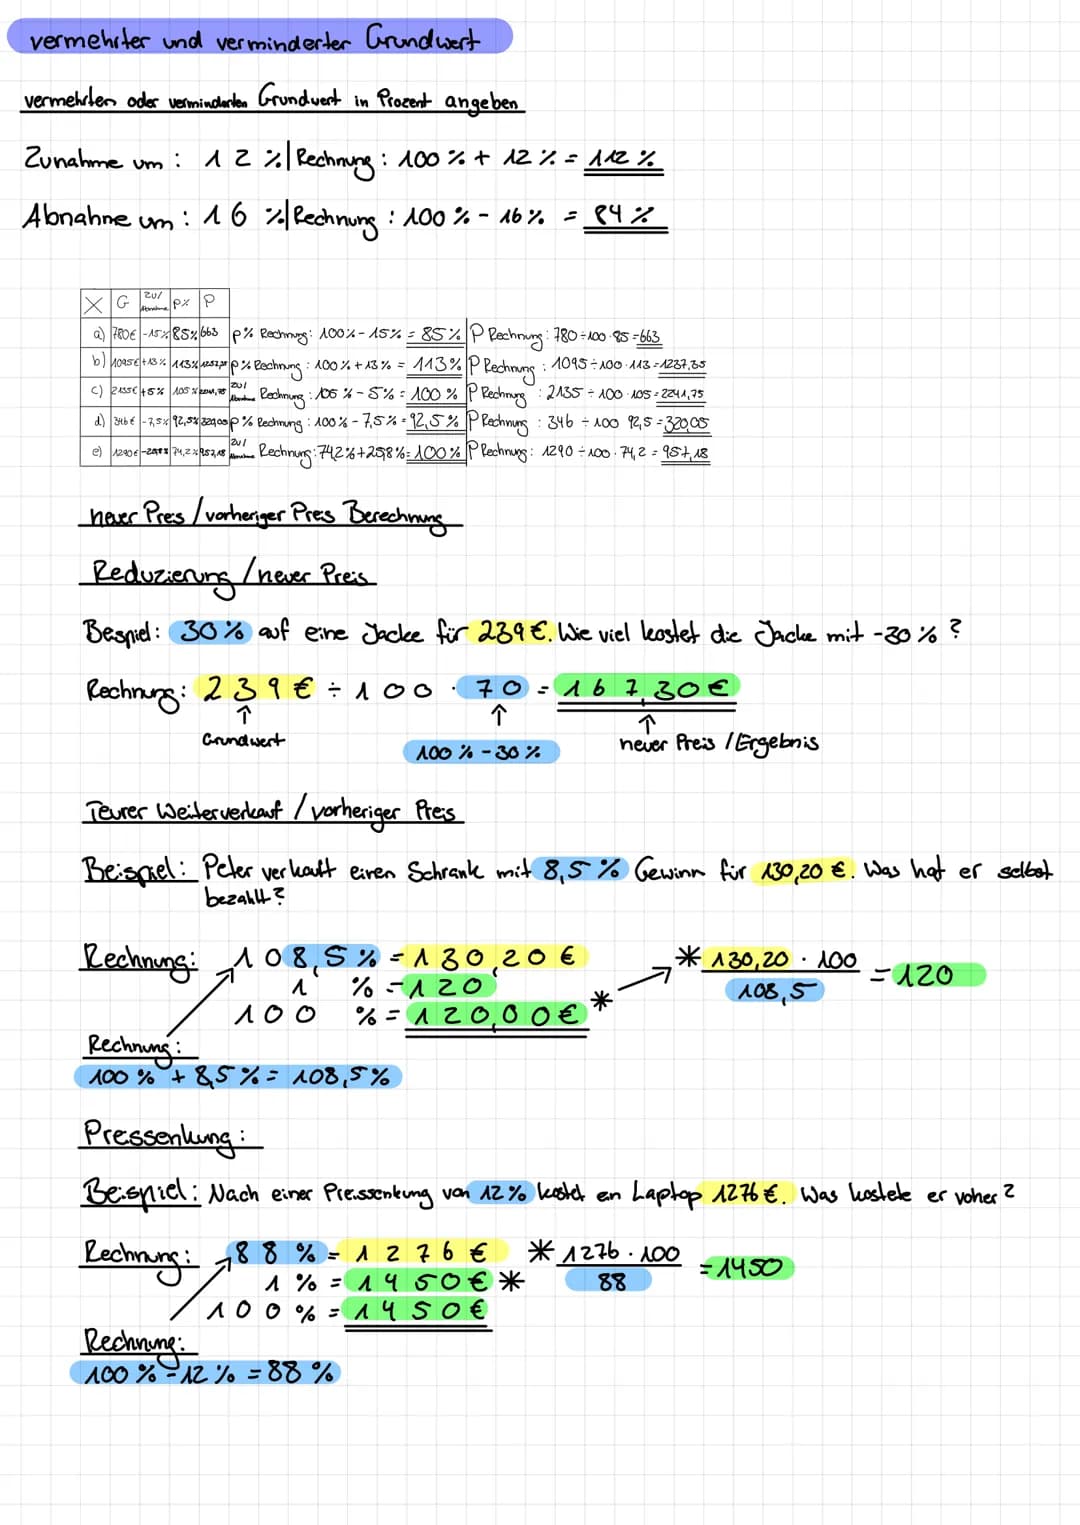 vermehrter und verminderter Grundwert
vermehrten oder verminderten Grundwert in Prozent angeben
Zunahme um : 12 % | Rechnung : 100 % + 12 % = 112 %
Abnahme um : 16 % | Rechnung : 100 % - 16 % = 84 %
X G Zu/Abnahme P% P
a) 780€ -15% 85% 663 P% Rechnung: 100% - 15% = 85% P Rechnung: 780 ÷ 100 · 85 = 663
b) 1095€ +13% 113% 1237,35 P% Rechnung : 100% + 13% = 113% P Rechnung : 1095 ÷ 100 · 113 = 1237,35
c) 2135€ +5% 105% 2241,75 Zu/Abnahme Rechnung : 105% - 5% = 100% P Rechnung : 2135 ÷ 100 · 105 = 2241,75
d) 346€ -7,5% 92,5% 320,05 P% Rechnung : 100% - 7,5% = 92,5% P Rechnung : 346 ÷ 100 92,5 = 320,05
e) 1290€ -25,8% 74,2% 957,18 Zu/Abnahme Rechnung: 74,2% + 25,8% = 100% P Rechnung: 1290 ÷ 100 · 74,2 = 957,18
neuer Preis / vorheriger Preis Berechnung
Reduzierung / neuer Preis
Bespiel: 30% auf eine Jacke für 239€. Wie viel kostet die Jacke mit -30% ?
Rechnung: 239€ ÷ 100 · 70 = 167,30€
↑ ↑ ↑
Grundwert 100% - 30% neuer Preis / Ergebnis
Teurer Weiterverkauf / vorheriger Preis
Beispiel: Peter verkauft einen Schrank mit 8,5% Gewinn für 130,20 €. Was hat er selbst
bezahlt?
Rechnung: 108,5% = 130,20€ * 130,20 · 100 / 108,5 = 120
1 % = 120
100 % = 120,00€ *
Rechnung:
100% + 8,5% = 108,5%
Preissenkung:
Beispiel: Nach einer Preissenkung von 12% kostet ein Laptop 1276€. Was kostete er voher?
Rechnung: 88% = 1276€ * 1276 · 100 / 88 = 1450
1% = 1450€ *
100% = 1450€
Rechnung:
100% - 12% = 88%